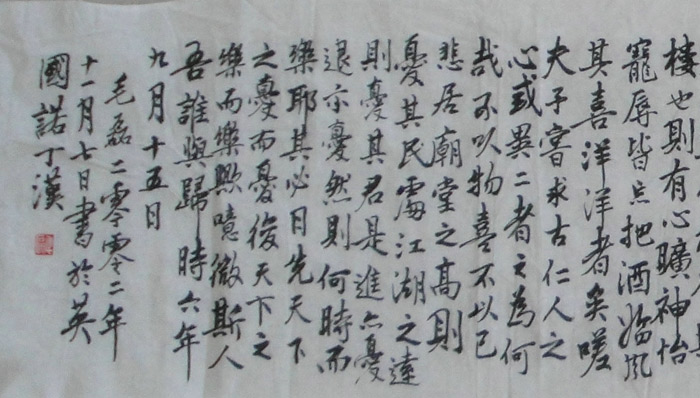 樓也則有心曠神怡
寵辱皆忘把酒臨風
其喜洋洋者矣嗟
夫予嘗求古仁人之
心或異二者之為何
哉不以物喜不以己
悲居廟堂之高則
憂其民處江湖之遠
則憂其君是進亦憂
退亦憂然則何時而
樂耶其必曰先天下
之憂而憂後天下之
樂而樂歟噫微斯人
吾誰與歸時六年
九月十五日
毛磊二零零二年
十一月七日書於英
國諾丁漢